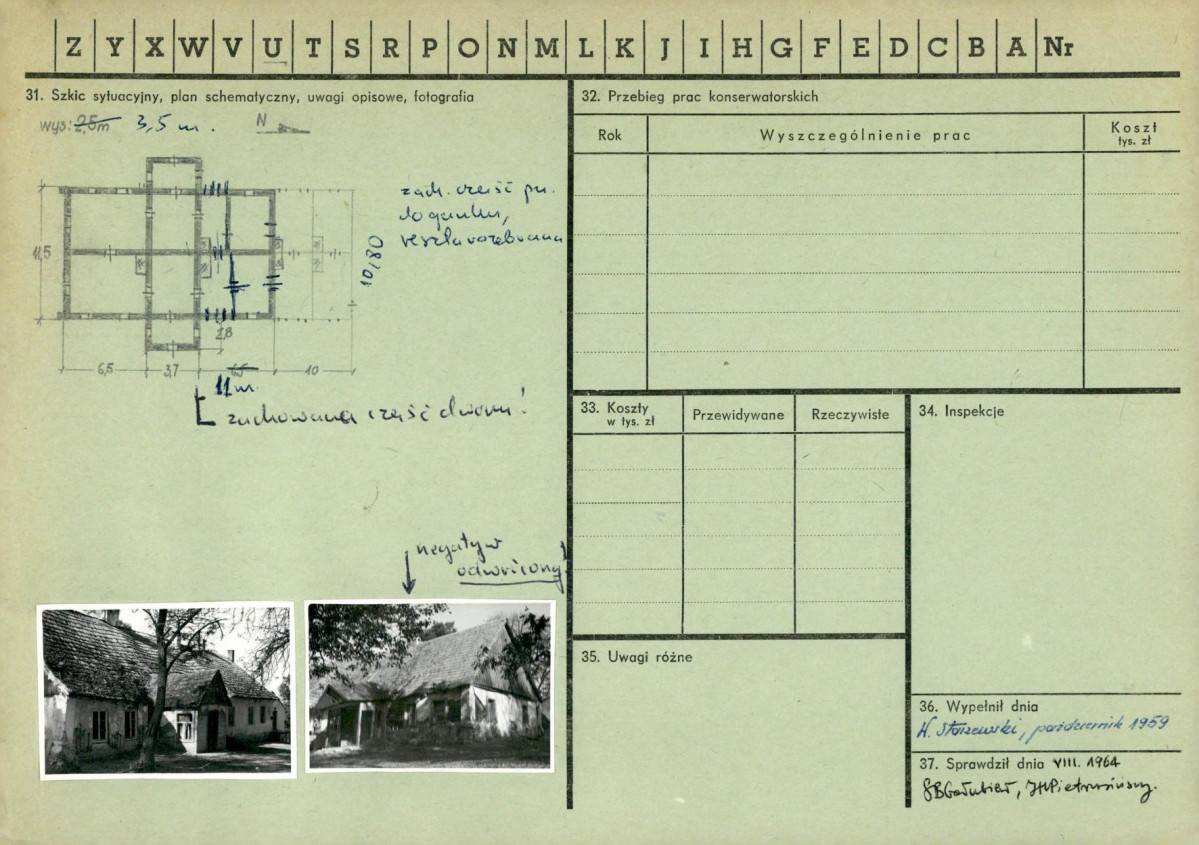 Z Y X W V U T S R P O N M L K J I H G F E D C B A Nr
31. Szkic sytuacyjny, plan schematyczny, uwagi opisowe, fotografia
wys: 2,5m 3,5 m.
N
zach. część pn.
do ganku,
reszta rozebrana
11,5
10,80
2,8
6,5 3,7 6,5 10
11 m.
zachowana część dworu!
negatyw
odwrócony!
32. Przebieg prac konserwatorskich
Rok Wyszczególnienie prac Koszt
tys. zł
33. Koszty
w tys. zł
Przewidywane Rzeczywiste
34. Inspekcje
35. Uwagi różne
36. Wypełnił dnia
październik 1959
37. Sprawdził dnia VIII. 1964